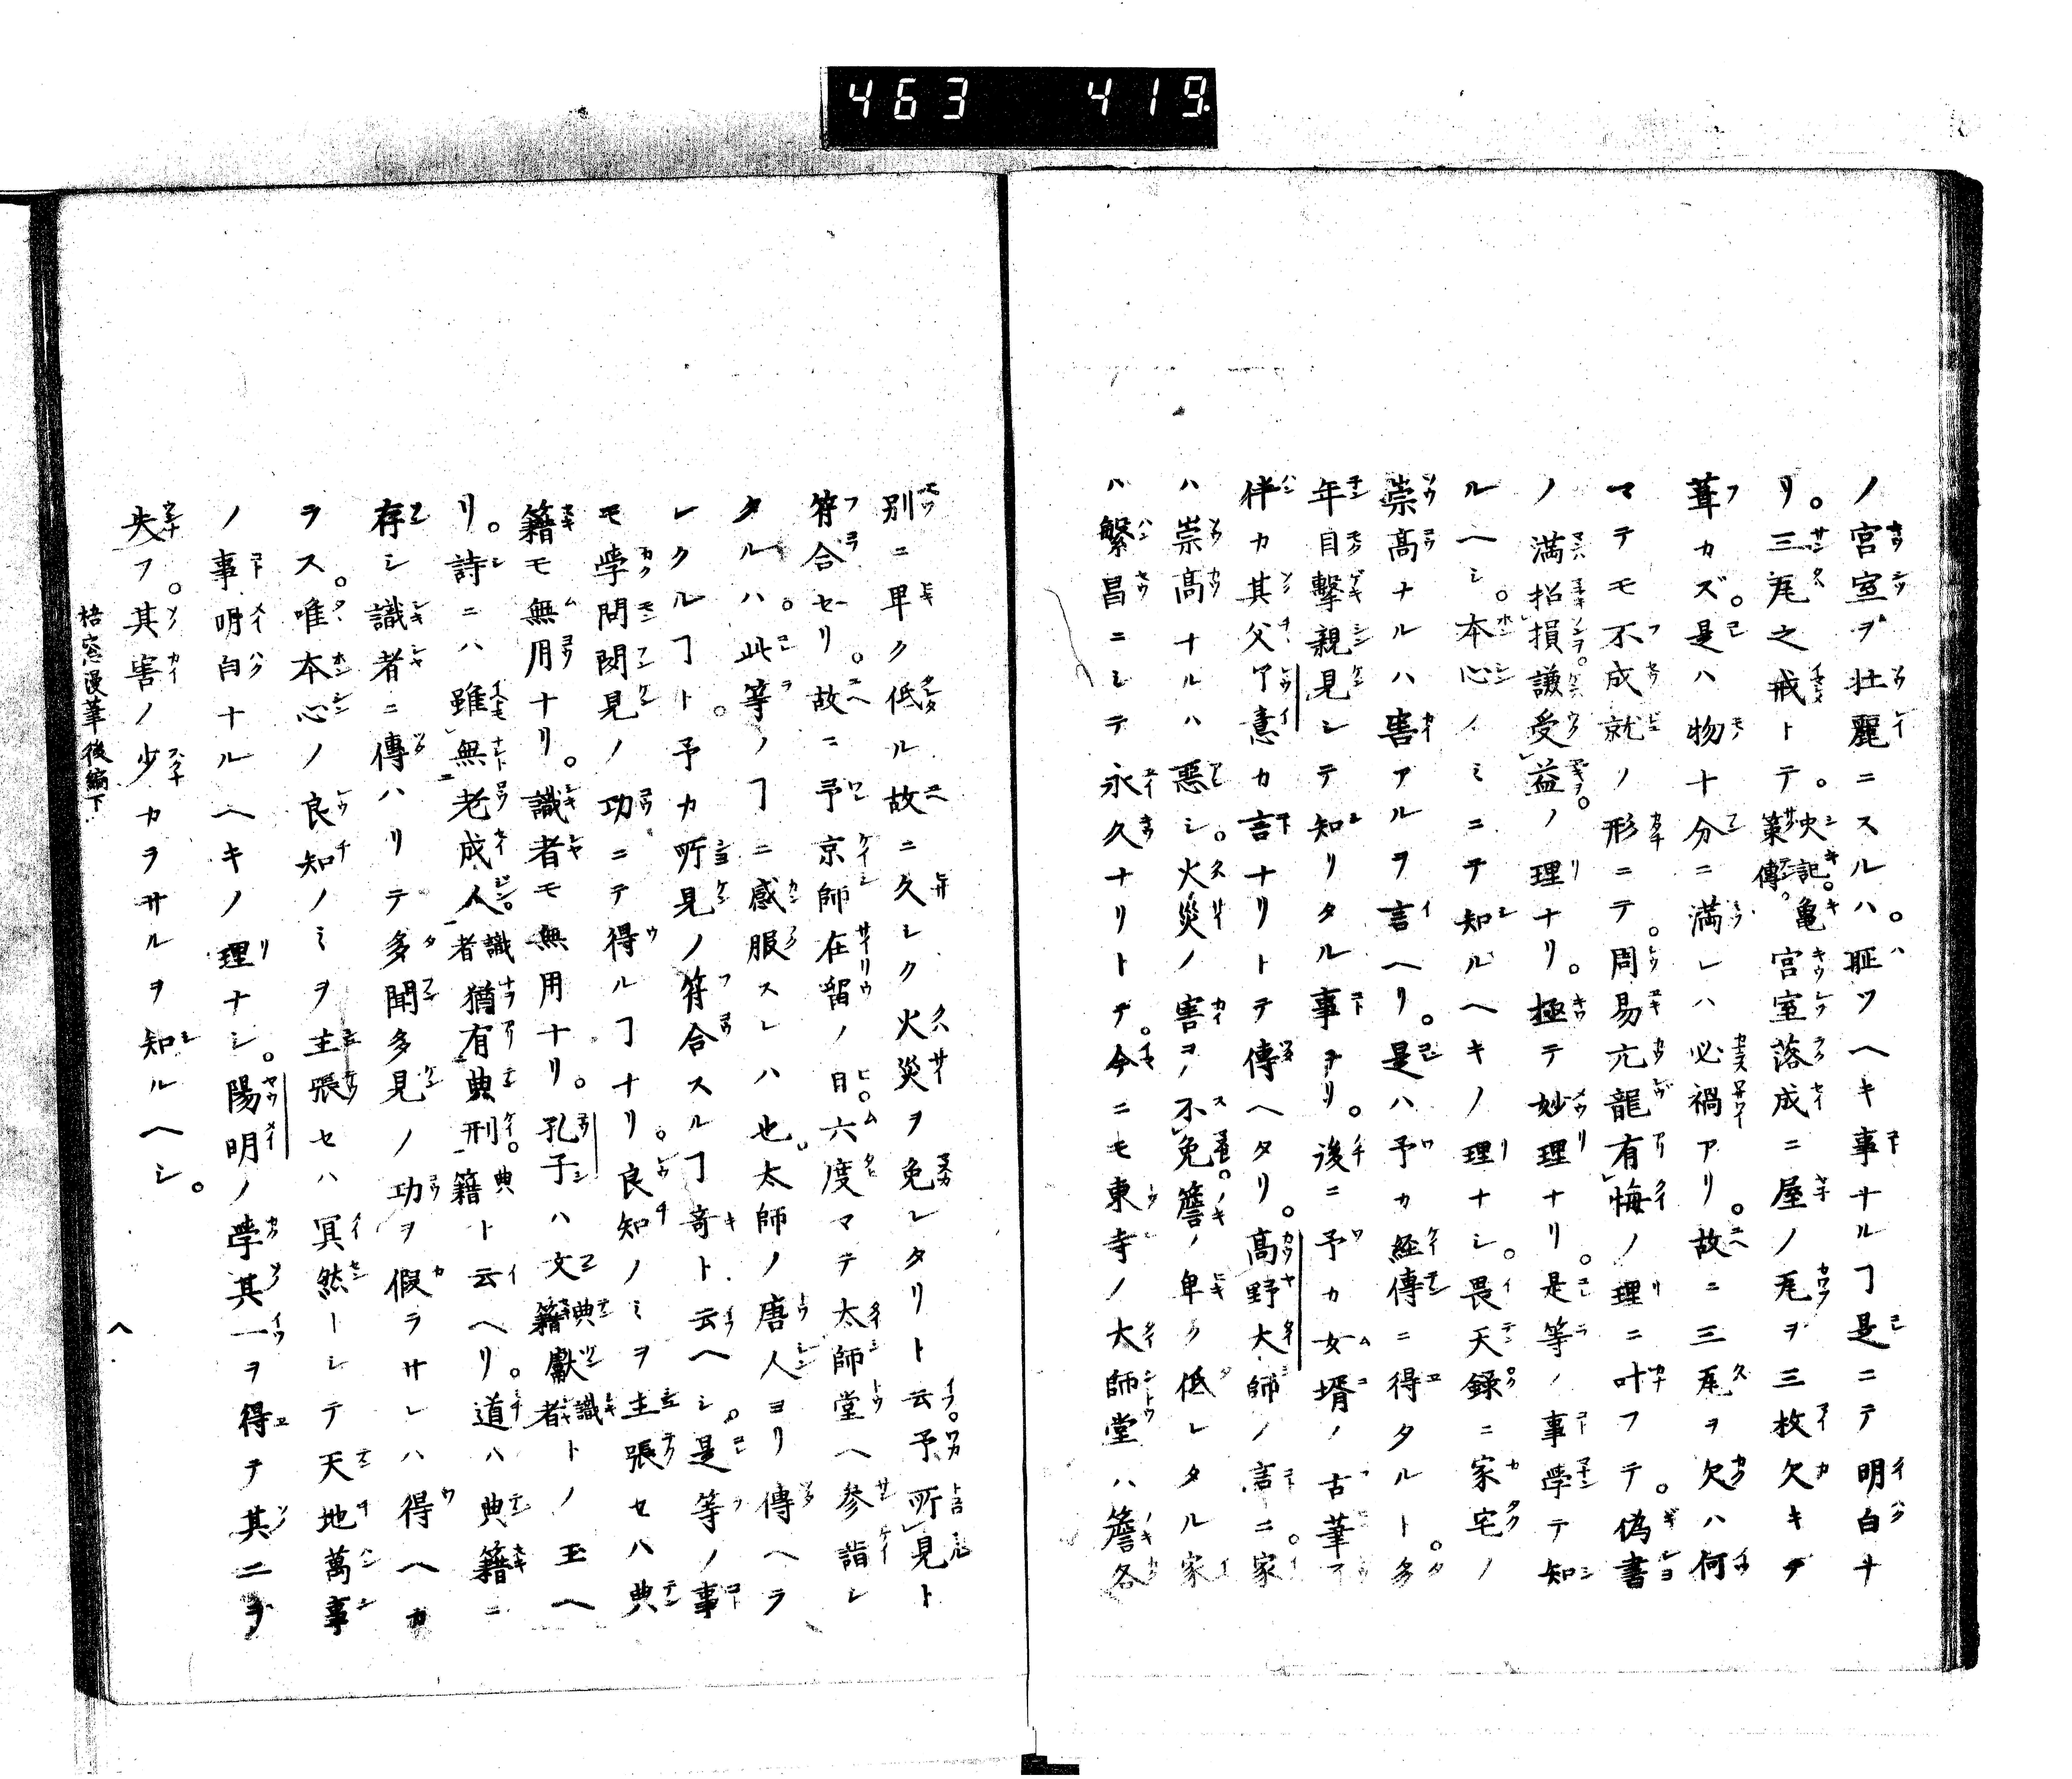 463 419
ノ宮室ヲ壮麗ニスルハ。耻ツヘキ事ナルヿ是ニテ明白ナ
リ。三瓦之戒トテ。史記。亀策傳。宮室落成ニ屋ノ瓦ヲ三枚欠キテ
葺カズ。是ハ物十分ニ満レハ必禍アリ。故ニ三瓦ヲ欠ハ何
マテモ不成就ノ形ニテ。周易亢龍有悔ノ理ニ叶フテ。偽書
ノ満招損。謙受益。ノ理ナリ。極テ妙理ナリ。是等ノ事学テ知
ルヘシ。本心ノミニテ知ルヘキノ理ナシ。畏天録ニ家宅ノ
崇髙ナルハ害アルヲ言ヘリ。是ハ予カ経傳ニ得タルト。多
年目撃親見シテ知リタル事ヲリ。後ニ予カ女壻ノ古筆了
伴カ其父了意カ言ナリトテ傳ヘタリ。髙野大師ノ言ニ。家
ハ崇髙ナルハ悪シ。火災ノ害ヲ不免。簷ノ卑ク低レタル家
ハ繁昌ニシテ永久ナリトテ。今ニモ東寺ノ大師堂ハ簷各
別ニ卑ク低ル故ニ久シク火災ヲ免レタリト云。予所見ト
符合セリ。故ニ予京師在留ノ日。六度マテ太師堂ヘ參詣シ
タルハ。此等ノヿニ感服スレハ也。太師ノ唐人ヨリ傳ヘラ
レクルヿト。予カ所見ノ符合スルヿ奇ト云ヘシ。是等ノ事
モ学問聞見ノ功ニテ得ルヿナリ。良知ノミヲ主張セハ典
籍モ無用ナリ。識者モ無用ナリ。孔子ハ文典籍獻識者トノ玉ヘ
リ。詩ニハ雖無老成人。識者猶有典刑。典籍ト云ヘリ。道ハ典籍ニ
存シ識者ニ傳ハリテ多聞多見ノ功ヲ假ラサレハ得ヘカ
ラス。唯本心ノ良知ノミヲ主張セハ冥然ーシテ天地萬事
ノ事明白ナルヘキノ理ナシ。陽明ノ学其一ヲ得テ其二ヲ
失フ。其害ノ少カラサルヲ知ルヘシ。
梧窓漫筆後編下
八